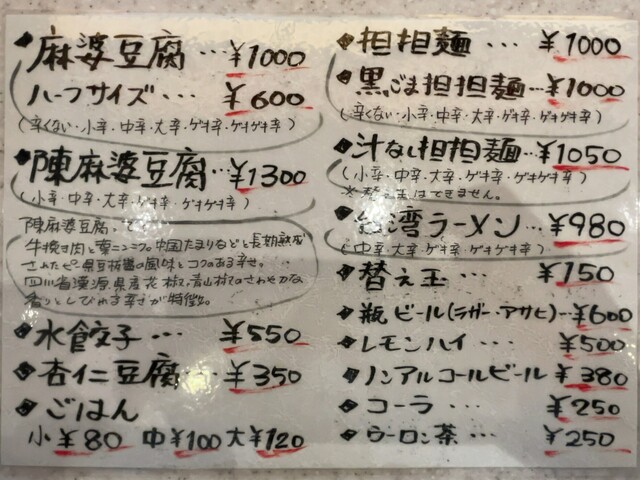 麻婆豆腐…¥1000
ハーフサイズ…¥600
(辛くない・小辛・中辛・大辛・ゲキ辛・ゲキゲキ辛)
陳麻婆豆腐…¥1300
(小辛・中辛・大辛・ゲキ辛・ゲキゲキ辛)
陳麻婆豆腐って
牛挽き肉と葉ニンニク。中国たまりなどと長期熟成
されたピー県豆板醤の風味とコクのある辛せ。
四川省漢源県産花椒、青山椒のさわやかな
香りとしびれる辛さが特徴。
水餃子…¥550
杏仁豆腐…¥350
ごはん
小¥80 中¥100 大¥120
担担麺…¥1000
黒ごま担担麺…¥1000
(辛くない・小辛・中辛・大辛・ゲキ辛・ゲキゲキ辛)
汁なし担担麺…¥1050
(小辛・中辛・大辛・ゲキ辛・ゲキゲキ辛)
※替え玉はできません。
台湾ラーメン…¥980
(中辛・大辛・ゲキ辛・ゲキゲキ辛)
替え玉…¥150
瓶ビール(ラガー・アサヒ)…¥600
レモンハイ…¥500
ノンアルコールビール ¥380
コーラ…¥250
ウーロン茶…¥250